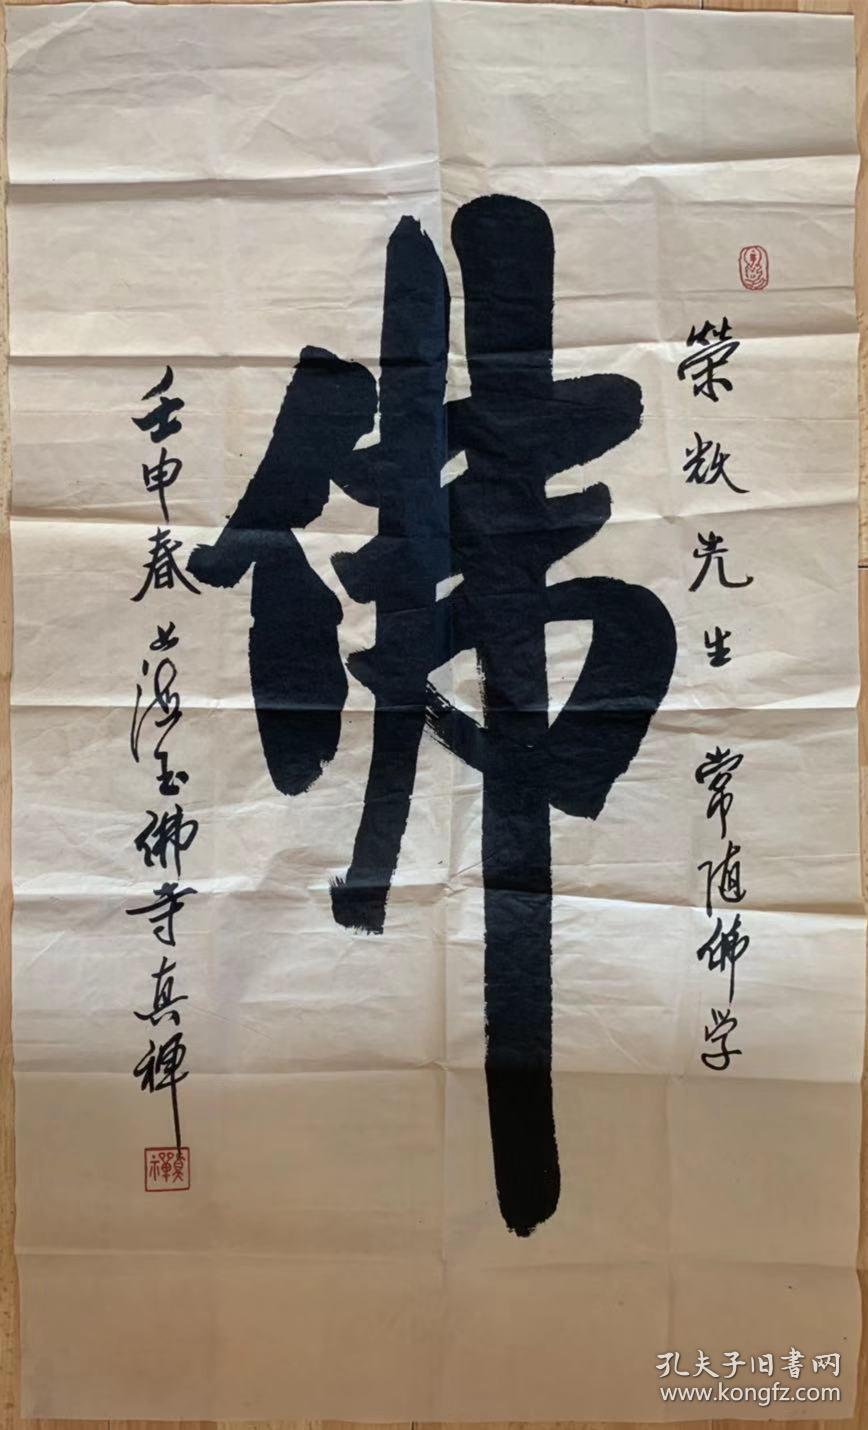 佛
荣辉先生 常随佛学
壬申春 上海玉佛寺真禅
真禪
孔夫子旧书网
www.kongfz.com